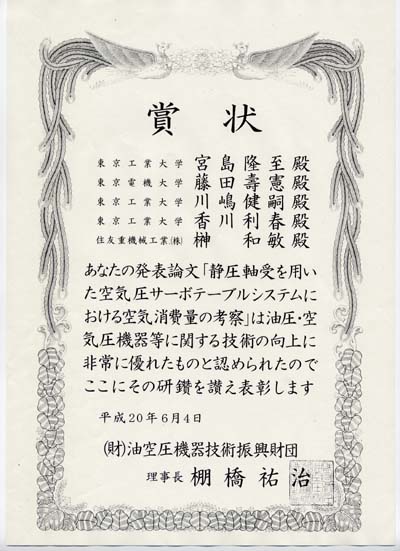 賞状
東京工業大学 宮島隆至殿
東京電機大学 藤田壽憲殿
東京工業大学 川嶋健嗣殿
東京工業大学 香川利春殿
住友重機械工業(株) 榊和敏殿
あなたの発表論文「静圧軸受を用い
た空気圧サーボテーブルシステムに
おける空気消費量の考察」は油圧・空
気圧機器等に関する技術の向上に
非常に優れたものと認められたので
ここにその研鑽を讃え表彰します
平成20年6月4日
(財)油空圧機器技術振興財団
理事長 棚橋祐治